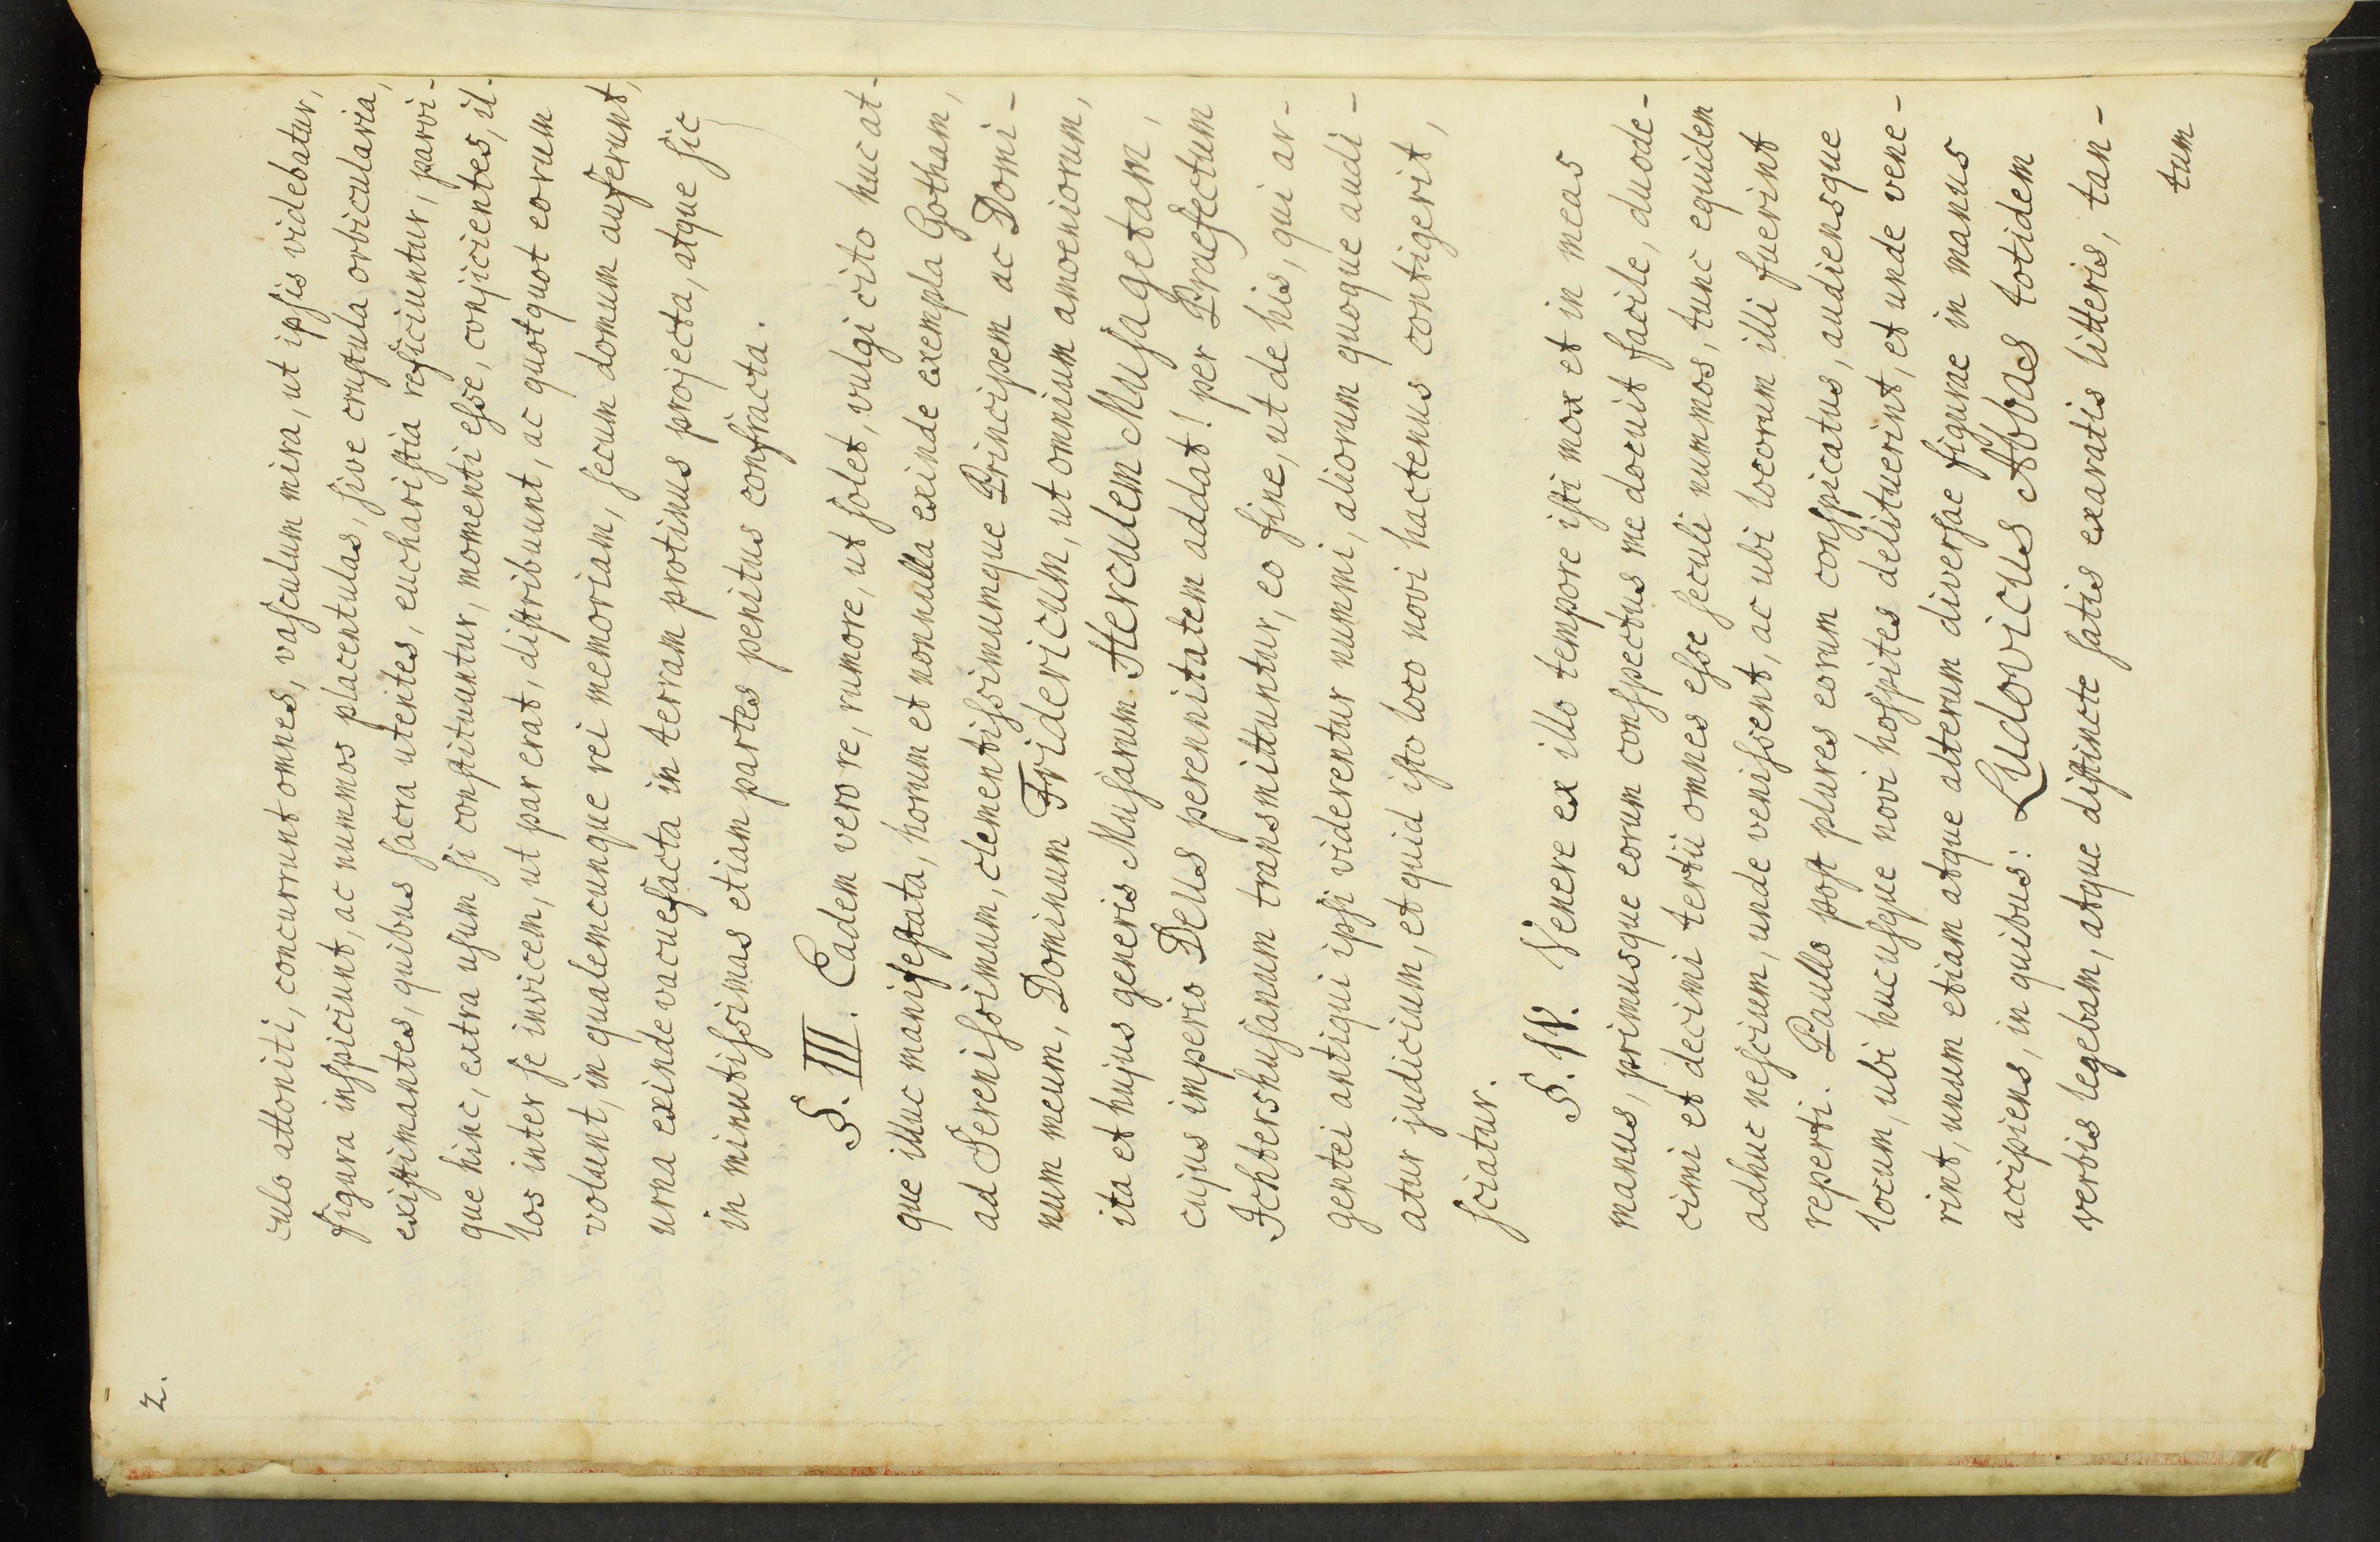 2.
culo attoniti, concurrunt omnes, vasculum mira, ut ipsis videbatur,
figura inspiciunt, ac nummos placentulas, sive crustula orbicularia,
existimantes, quibus sacra utentes, eucharistia reficiuntur, parvi-
que hinc, extra usum si constituuntur, momenti esse, conjicientes, il-
los inter se invicem, ut par erat, distribuunt, ac quotquot eorum
volunt, in qualemcunque rei memoriam, secum domum auferunt,
urna exinde vacuefacta in terram protinus projecta, atque sic
in minutissimas etiam partes penitus confracta.
§. III. Eadem vero re, rumore, ut solet, vulgi cito huc at-
que illuc manifestata, horum et nonnulla exinde exempla Gotham,
ad Serenissimum, clementissimumque Principem ac Domi-
num meum, Dominum Fridericum, ut omnium amoeniorum,
ita et hujus generis Musarum Herculem Musagetam,
cujus imperio Deus perennitatem addat! per Praefectum
Ichtershusanum transmittuntur, eo fine, ut de his, qui ar-
gentei antiqui ipsi viderentur nummi, aliorum quoque audi-
atur judicium, et quid isto loco novi hactenus contigerit,
sciatur.
§. IV. Venere ex illo tempore isti mox et in meas
manus, primusque eorum conspectus me docuit facile, duode-
cimi et decimi tertii omnes esse seculi nummos, tunc equidem
adhuc nescium, unde venissent, ac ubi locorum illi fuerint
reperti. Paullo post plures eorum conspicatus, audiensque
locum, ubi hucusque novi hospites delituerint, et unde vene-
rint, unum etiam atque alterum diversae figurae in manus
accipiens, in quibus: Ludovicus Abbas totidem
verbis legebam, atque distincte satis exaratis litteris, tan-
tum